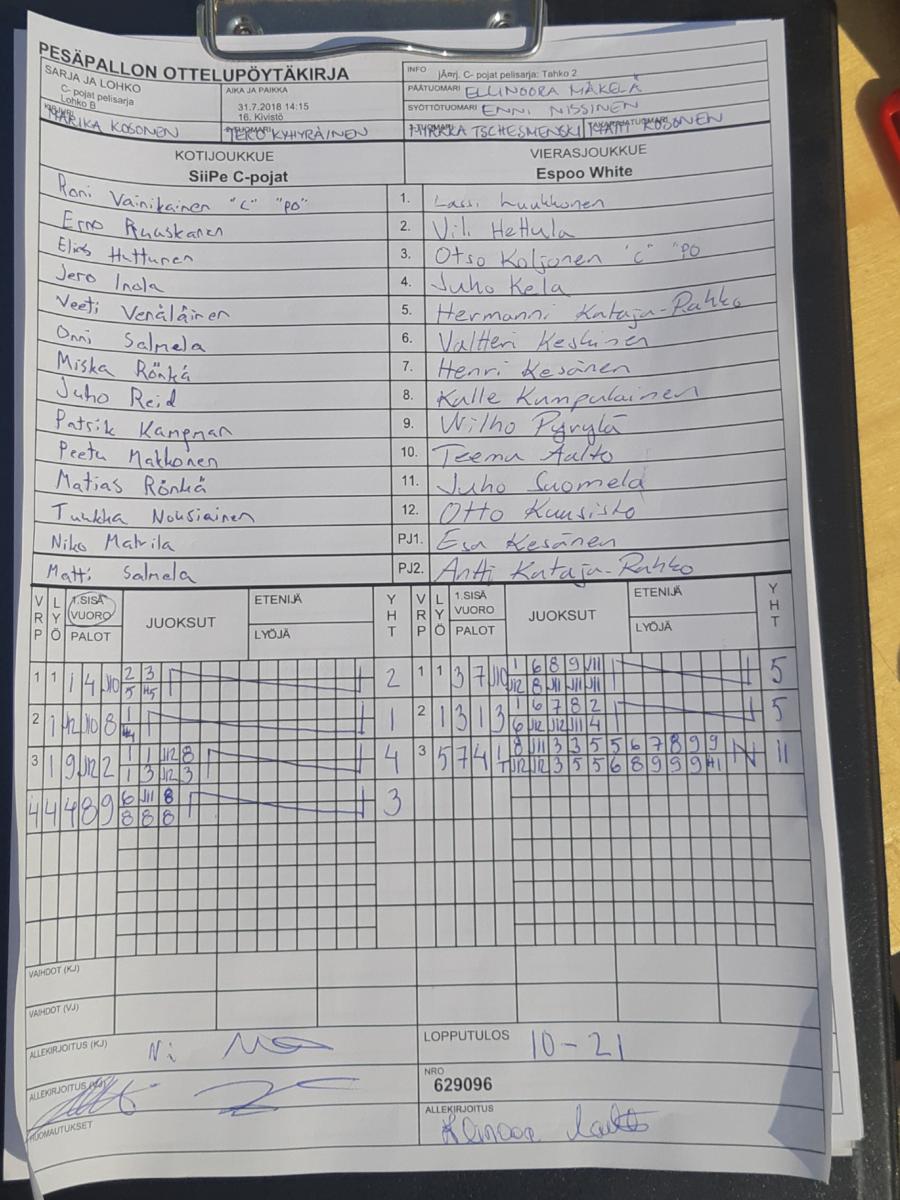 PESÄPALLON OTTELUPÖYTÄKIRJA
INFO jÃ¤rj. C- pojat pelisarja: Tahko 2
SARJA JA LOHKO
C- pojat pelisarja
Lohko B
AIKA JA PAIKKA
31.7.2018 14:15
16. Kivistö
PÄÄTUOMARI ELLINOORA MÄKELÄ
SYÖTTÖTUOMARI ENNI NISSINEN
MARIKA KOSONEN
TERO KYHYRÄINEN
TSCHESMENSKI
KOSONEN
KOTIJOUKKUE
SiiPe C-pojat
VIERASJOUKKUE
Espoo White
Roni Vainikainen "C" "PO" 1. Lassi Luukkonen
Erno Ruuskanen 2. Vili Hettula
Elias Huttunen 3. Otso Koljonen "C" "PO
Jero Inola 4. Juho Kela
Veeti Venäläinen 5. Hermanni Kataja-Rahko
Onni Salmela 6. Valtteri Keskinen
Miska Rönkä 7. Henri Kesänen
Juho Reid 8. Kalle Kumpulainen
Patrik Kampman 9. Wilho Pyrylä
Peetu Makkonen 10. Teemu Aalto
Matias Rönkä 11. Juho Suomela
Tuukka Nousiainen 12. Otto Kuusisto
Niko Matrila PJ1. Esa Kesänen
Matti Salmela PJ2. Antti Kataja-Rahko
VRP LYÖ 1.SISÄ VUORO PALOT JUOKSUT ETENIJÄ LYÖJÄ YHT VRP LYÖ 1.SISÄ VUORO PALOT JUOKSUT ETENIJÄ LYÖJÄ YHT
2 3 1 6 8 9 J11
1 1 1 4 J10 2 1 1 3 7 J10 5
5 H5 J12 8 J11 J11 J11
1 1 6 7 8 2
2 1 J12 J10 8 1 2 1 3 1 3 5
6 J12 J12 J11 4
1 1 J12 8 8 J11 3 3 5 5 6 7 8 9 9
3 1 9 J12 2 4 3 5 7 4 1 N 11
1 3 J12 3 J12 J12 3 5 5 6 8 9 9 9 H1
6 J11 8
4 4 4 8 9 3
8 8 8
VAIHDOT (KJ)
VAIHDOT (VJ)
ALLEKIRJOITUS (KJ)
LOPPUTULOS 10-21
ALLEKIRJOITUS (VJ)
NRO
629096
HUOMAUTUKSET
ALLEKIRJOITUS